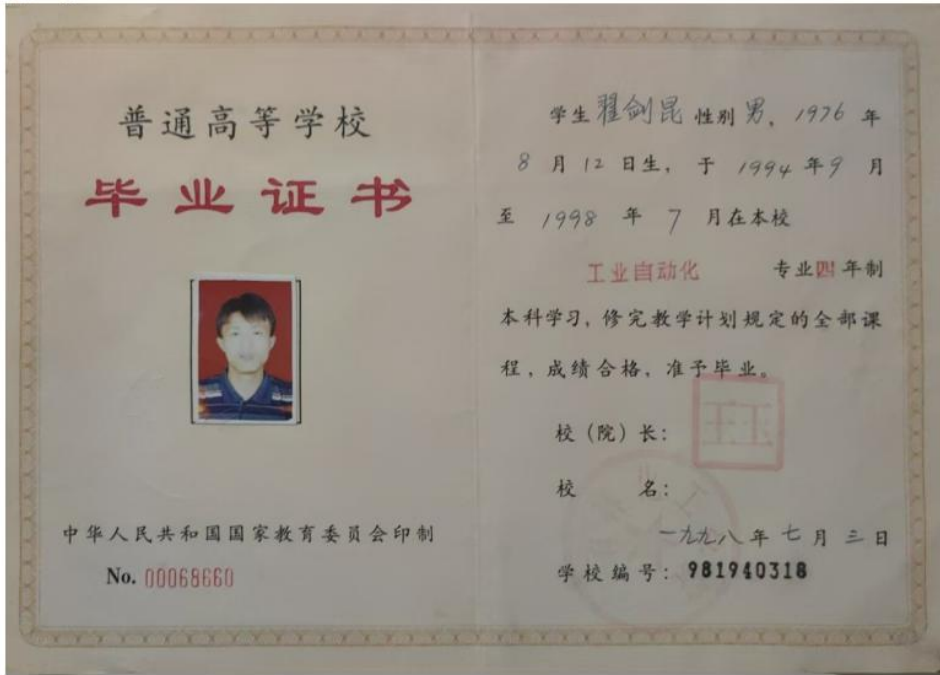 普通高等学校
毕业证书
中华人民共和国国家教育委员会印制
No. 00068660
学生翟剑昆性别男，1976年
8月12日生，于1994年9月
至1998年7月在本校
工业自动化 专业四年制
本科学习，修完教学计划规定的全部课
程，成绩合格，准予毕业。
校（院）长：
校 名：
一九九八年七月三日
学校编号：981940318